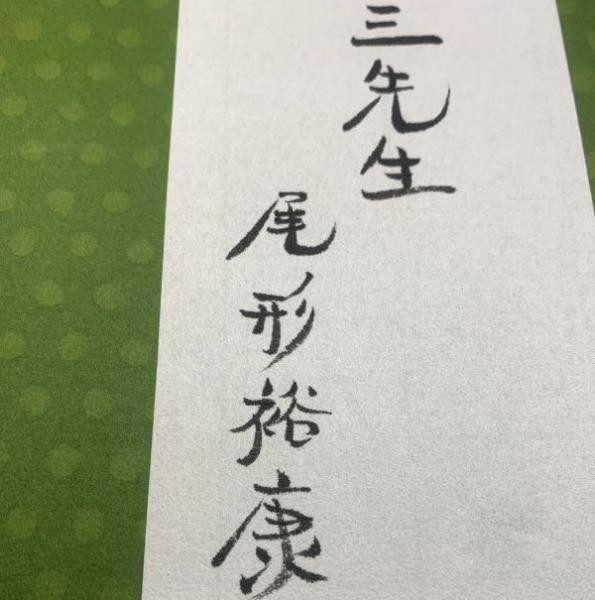 三先生
尾形裕康